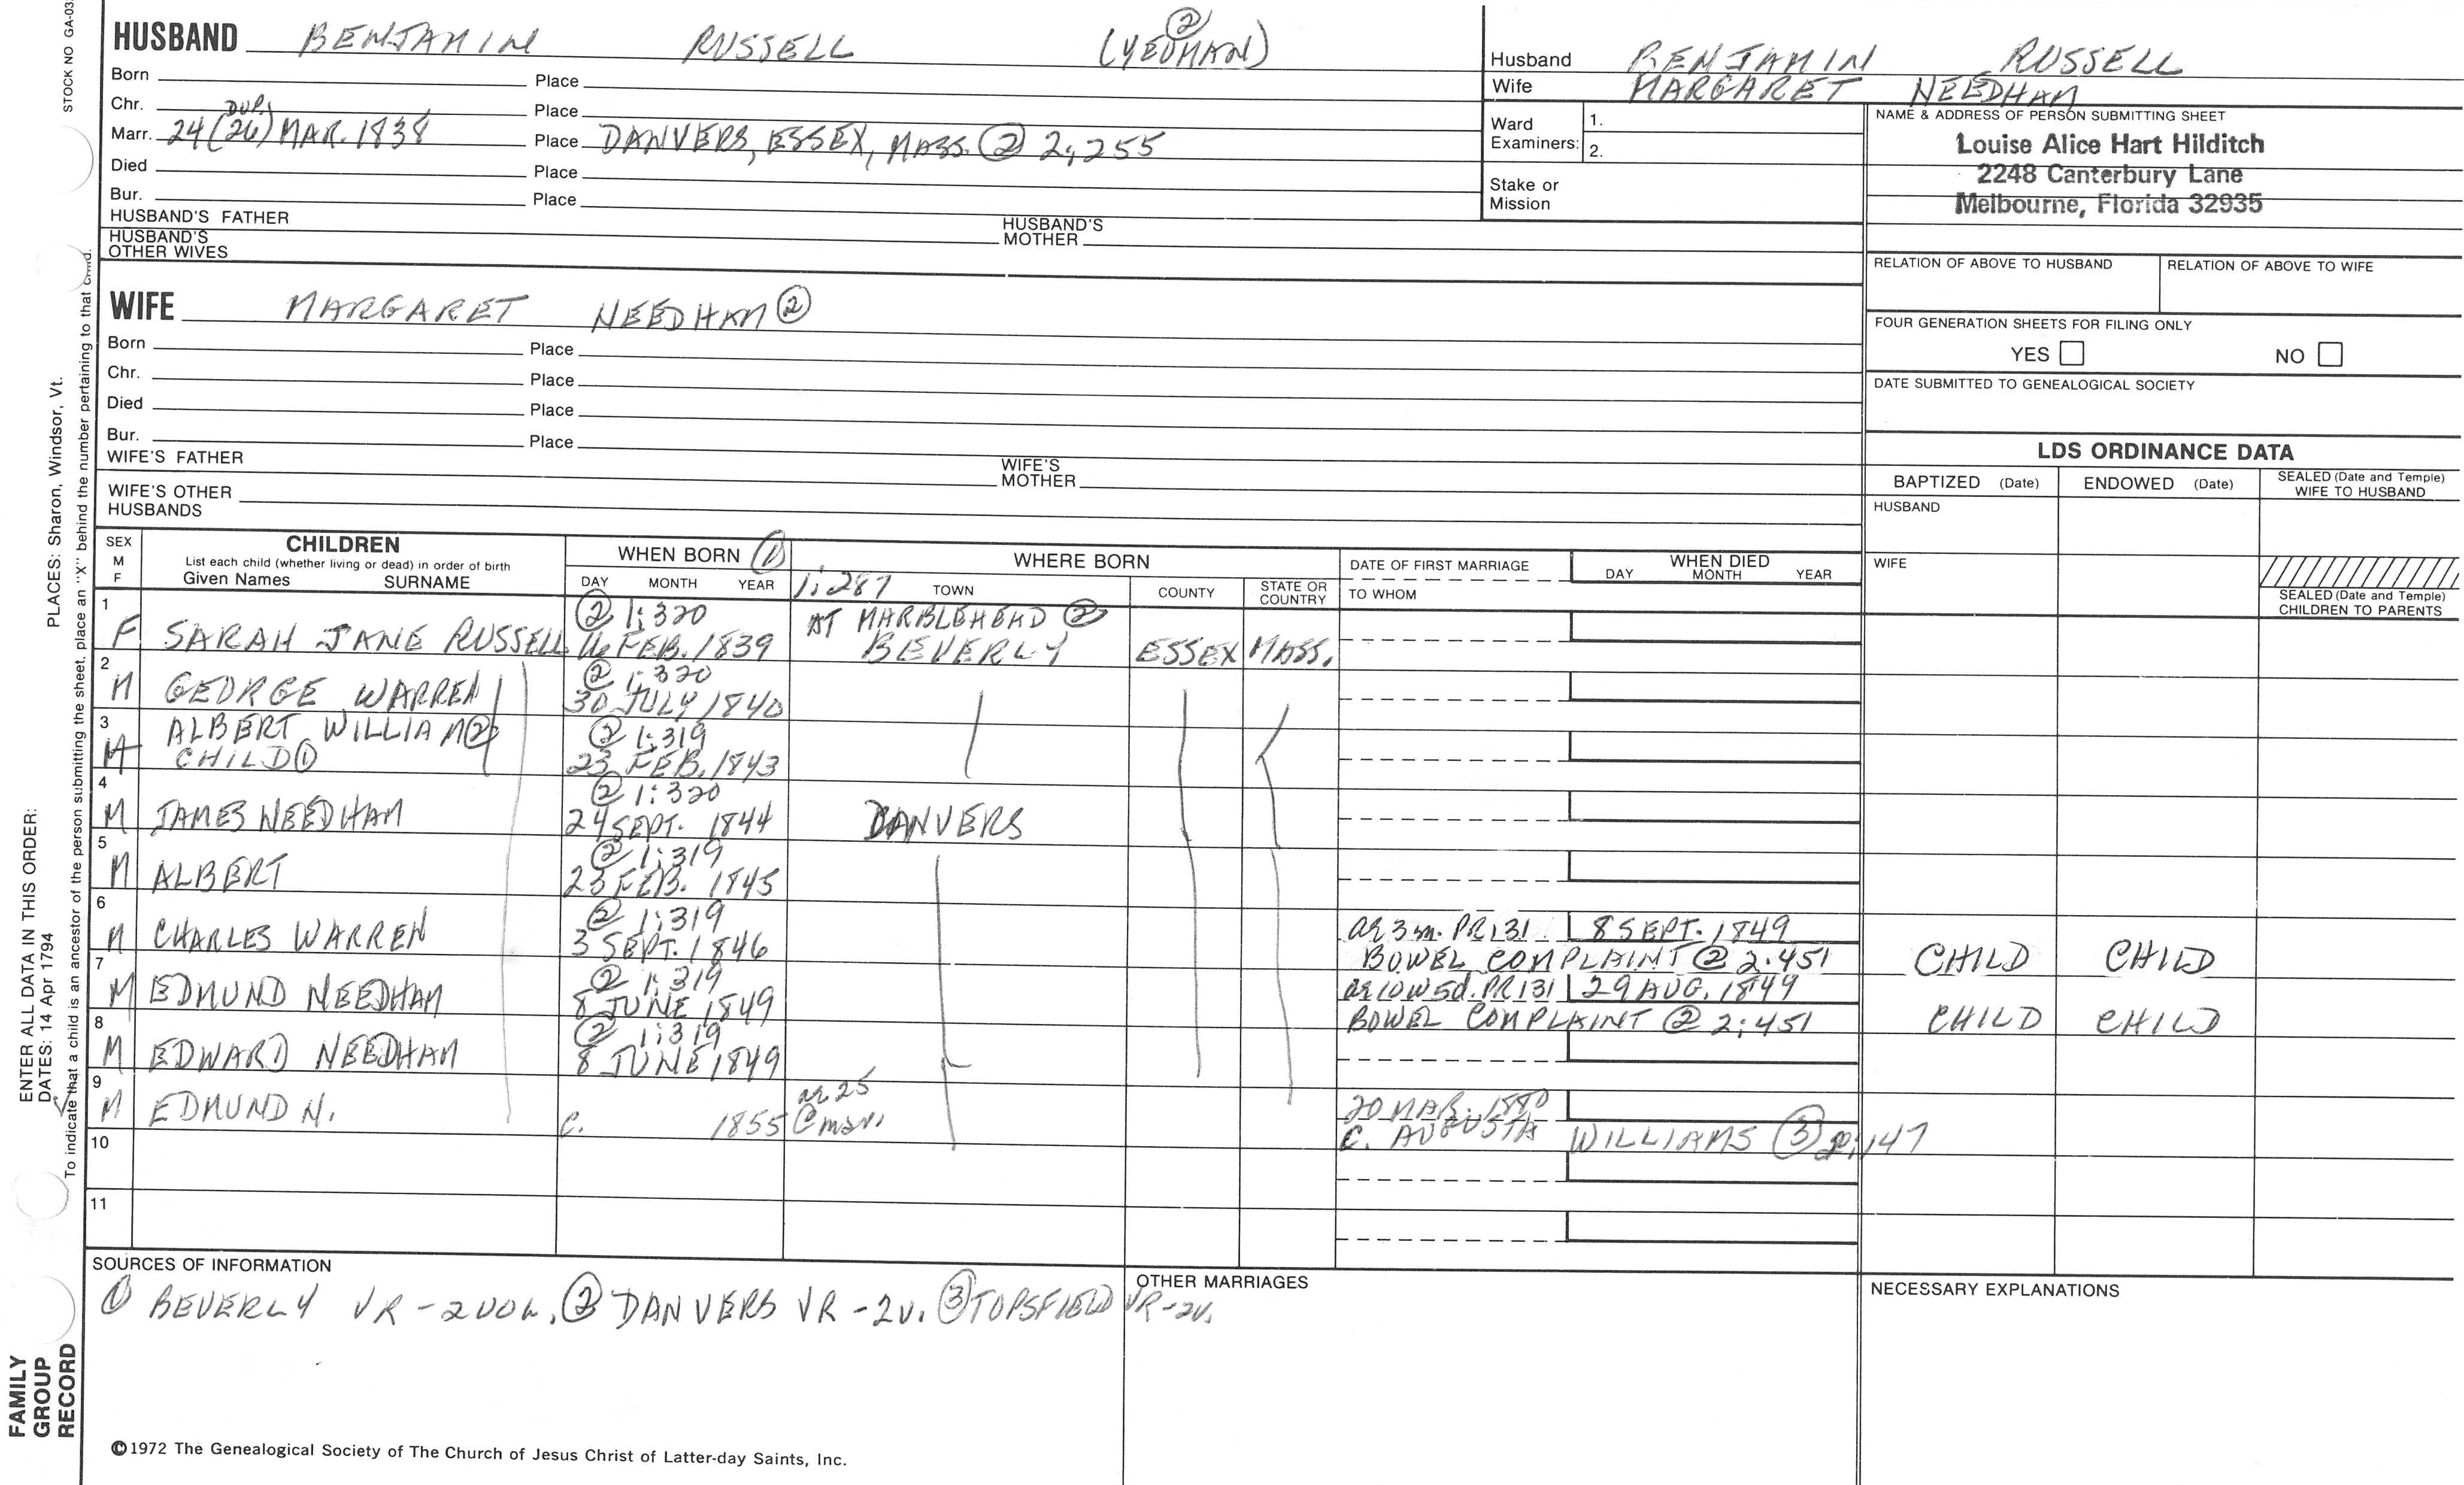 STOCK NO GA-03
PLACES: Sharon, Windsor, Vt.
ENTER ALL DATA IN THIS ORDER:
DATES: 14 Apr 1794
To indicate that a child is an ancestor of the person submitting the sheet, place an "X" behind the number pertaining to that child.
FAMILY
GROUP
RECORD
HUSBAND BENJAMIN RUSSELL (YEOMAN) ②
Born Place
Chr. Place
DUP.
Marr. 24(26) MAR. 1838 Place DANVERS, ESSEX, MASS. ② 2;255
Died Place
Bur. Place
HUSBAND'S FATHER HUSBAND'S MOTHER
HUSBAND'S OTHER WIVES
WIFE MARGARET NEEDHAM ②
Born Place
Chr. Place
Died Place
Bur. Place
WIFE'S FATHER WIFE'S MOTHER
WIFE'S OTHER HUSBANDS
Husband BENJAMIN RUSSELL
Wife MARGARET NEEDHAM
Ward Examiners: 1.
2.
Stake or Mission
NAME & ADDRESS OF PERSON SUBMITTING SHEET
Louise Alice Hart Hilditch
2248 Canterbury Lane
Melbourne, Florida 32935
RELATION OF ABOVE TO HUSBAND RELATION OF ABOVE TO WIFE
FOUR GENERATION SHEETS FOR FILING ONLY
YES NO
DATE SUBMITTED TO GENEALOGICAL SOCIETY
LDS ORDINANCE DATA
BAPTIZED (Date) ENDOWED (Date) SEALED (Date and Temple) WIFE TO HUSBAND
HUSBAND
WIFE
SEALED (Date and Temple) CHILDREN TO PARENTS
SEX M F
CHILDREN
List each child (whether living or dead) in order of birth
Given Names SURNAME
WHEN BORN ①
DAY MONTH YEAR
WHERE BORN
1;287 TOWN COUNTY STATE OR COUNTRY
DATE OF FIRST MARRIAGE
TO WHOM
WHEN DIED
DAY MONTH YEAR
1 ② 1;320 AT MARBLEHEAD ②
F SARAH JANE RUSSELL 16 FEB. 1839 BEVERLY ESSEX MASS.
2 ② 1;320
M GEORGE WARREN 30 JULY 1840
3 ALBERT WILLIAM ② ② 1;319
M CHILD ① 23 FEB. 1843
4 ② 1:320
M JAMES NEEDHAM 24 SEPT. 1844 DANVERS
5 ② 1;319
M ALBERT 23 FEB. 1845
6 ② 1;319 ae 3m. PR131 8 SEPT. 1849
M CHARLES WARREN 3 SEPT. 1846 BOWEL COMPLAINT ② 2;451 CHILD CHILD
7 ② 1;319 ae 10w 5d. PR131 29 AUG. 1849
M EDMUND NEEDHAM 8 JUNE 1849 BOWEL COMPLAINT ② 2;451 CHILD CHILD
8 ② 1;319
M EDWARD NEEDHAM 8 JUNE 1849
9 ae 25 20 MAR. 1880
M EDMUND N. C. 1855 @ mar. C. AUGUSTA WILLIAMS ③ 2;147
10
11
SOURCES OF INFORMATION
① BEVERLY VR - 2 VOL. ② DANVERS VR - 2V. ③ TOPSFIELD VR - 2V.
OTHER MARRIAGES
NECESSARY EXPLANATIONS
©1972 The Genealogical Society of The Church of Jesus Christ of Latter-day Saints, Inc.